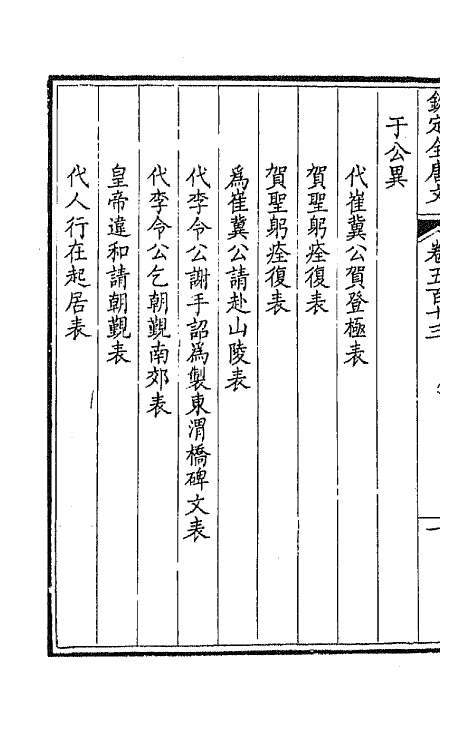 欽定全唐文 卷五百十三 一
于公異
代崔冀公賀登極表
賀聖躬痊復表
賀聖躬痊復表
爲崔冀公請赴山陵表
代李令公謝手詔爲製東渭橋碑文表
代李令公乞朝覲南郊表
皇帝違和請朝覲表
代人行在起居表